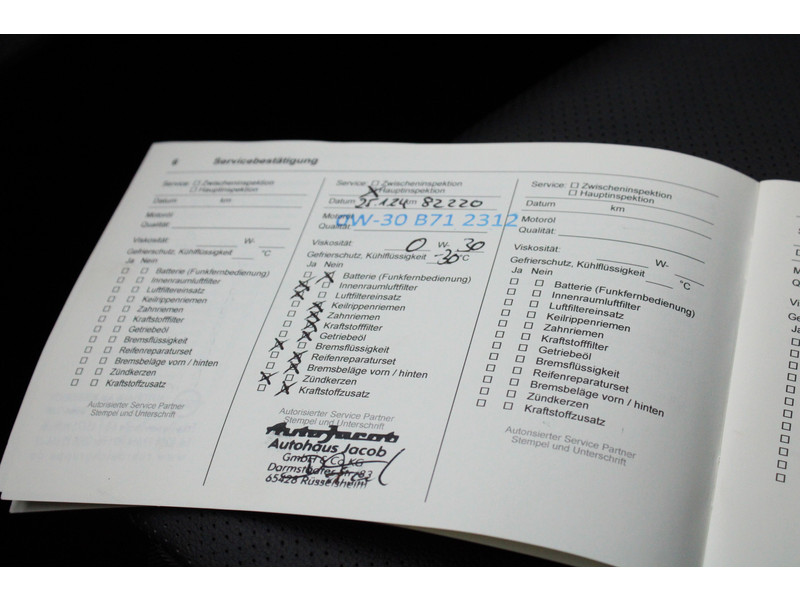 6 Servicebestätigung
Service: Zwischeninspektion
Hauptinspektion
Datum km
Motoröl
Qualität:
Viskosität: W-
Gefrierschutz, Kühlflüssigkeit °C
Ja Nein
Batterie (Funkfernbedienung)
Innenraumluftfilter
Luftfiltereinsatz
Keilrippenriemen
Zahnriemen
Kraftstofffilter
Getriebeöl
Bremsflüssigkeit
Reifenreparaturset
Bremsbeläge vorn / hinten
Zündkerzen
Kraftstoffzusatz
Autorisierter Service Partner
Stempel und Unterschrift
Service: Zwischeninspektion
Hauptinspektion
Datum 25.1.24 km 82220
Motoröl
Qualität: 0W-30 B71 2312
Viskosität: 0 W- 30
Gefrierschutz, Kühlflüssigkeit -30 °C
Ja Nein
Batterie (Funkfernbedienung)
Innenraumluftfilter
Luftfiltereinsatz
Keilrippenriemen
Zahnriemen
Kraftstofffilter
Getriebeöl
Bremsflüssigkeit
Reifenreparaturset
Bremsbeläge vorn / hinten
Zündkerzen
Kraftstoffzusatz
Autorisierter Service Partner
Stempel und Unterschrift
AutoJacob
Autohaus Jacob
GmbH & Co KG
Darmstädter Str. 83
65428 Rüsselsheim
Service: Zwischeninspektion
Hauptinspektion
Datum km
Motoröl
Qualität:
Viskosität: W-
Gefrierschutz, Kühlflüssigkeit °C
Ja Nein
Batterie (Funkfernbedienung)
Innenraumluftfilter
Luftfiltereinsatz
Keilrippenriemen
Zahnriemen
Kraftstofffilter
Getriebeöl
Bremsflüssigkeit
Reifenreparaturset
Bremsbeläge vorn / hinten
Zündkerzen
Kraftstoffzusatz
Autorisierter Service Partner
Stempel und Unterschrift